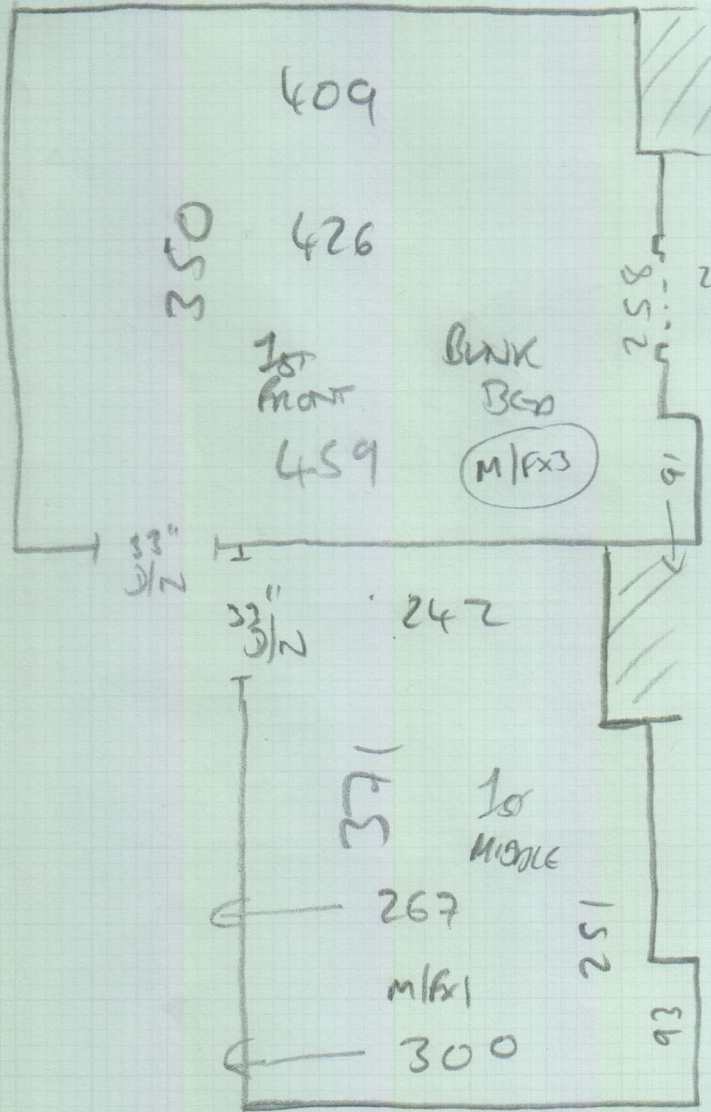 409
350
426
258
2
1st
FRONT
BUNK
BED
459
M/Fx3
91
33"
D/N
33"
D/N
242
371
1st
MIDDLE
267
251
M/Fx1
93
300